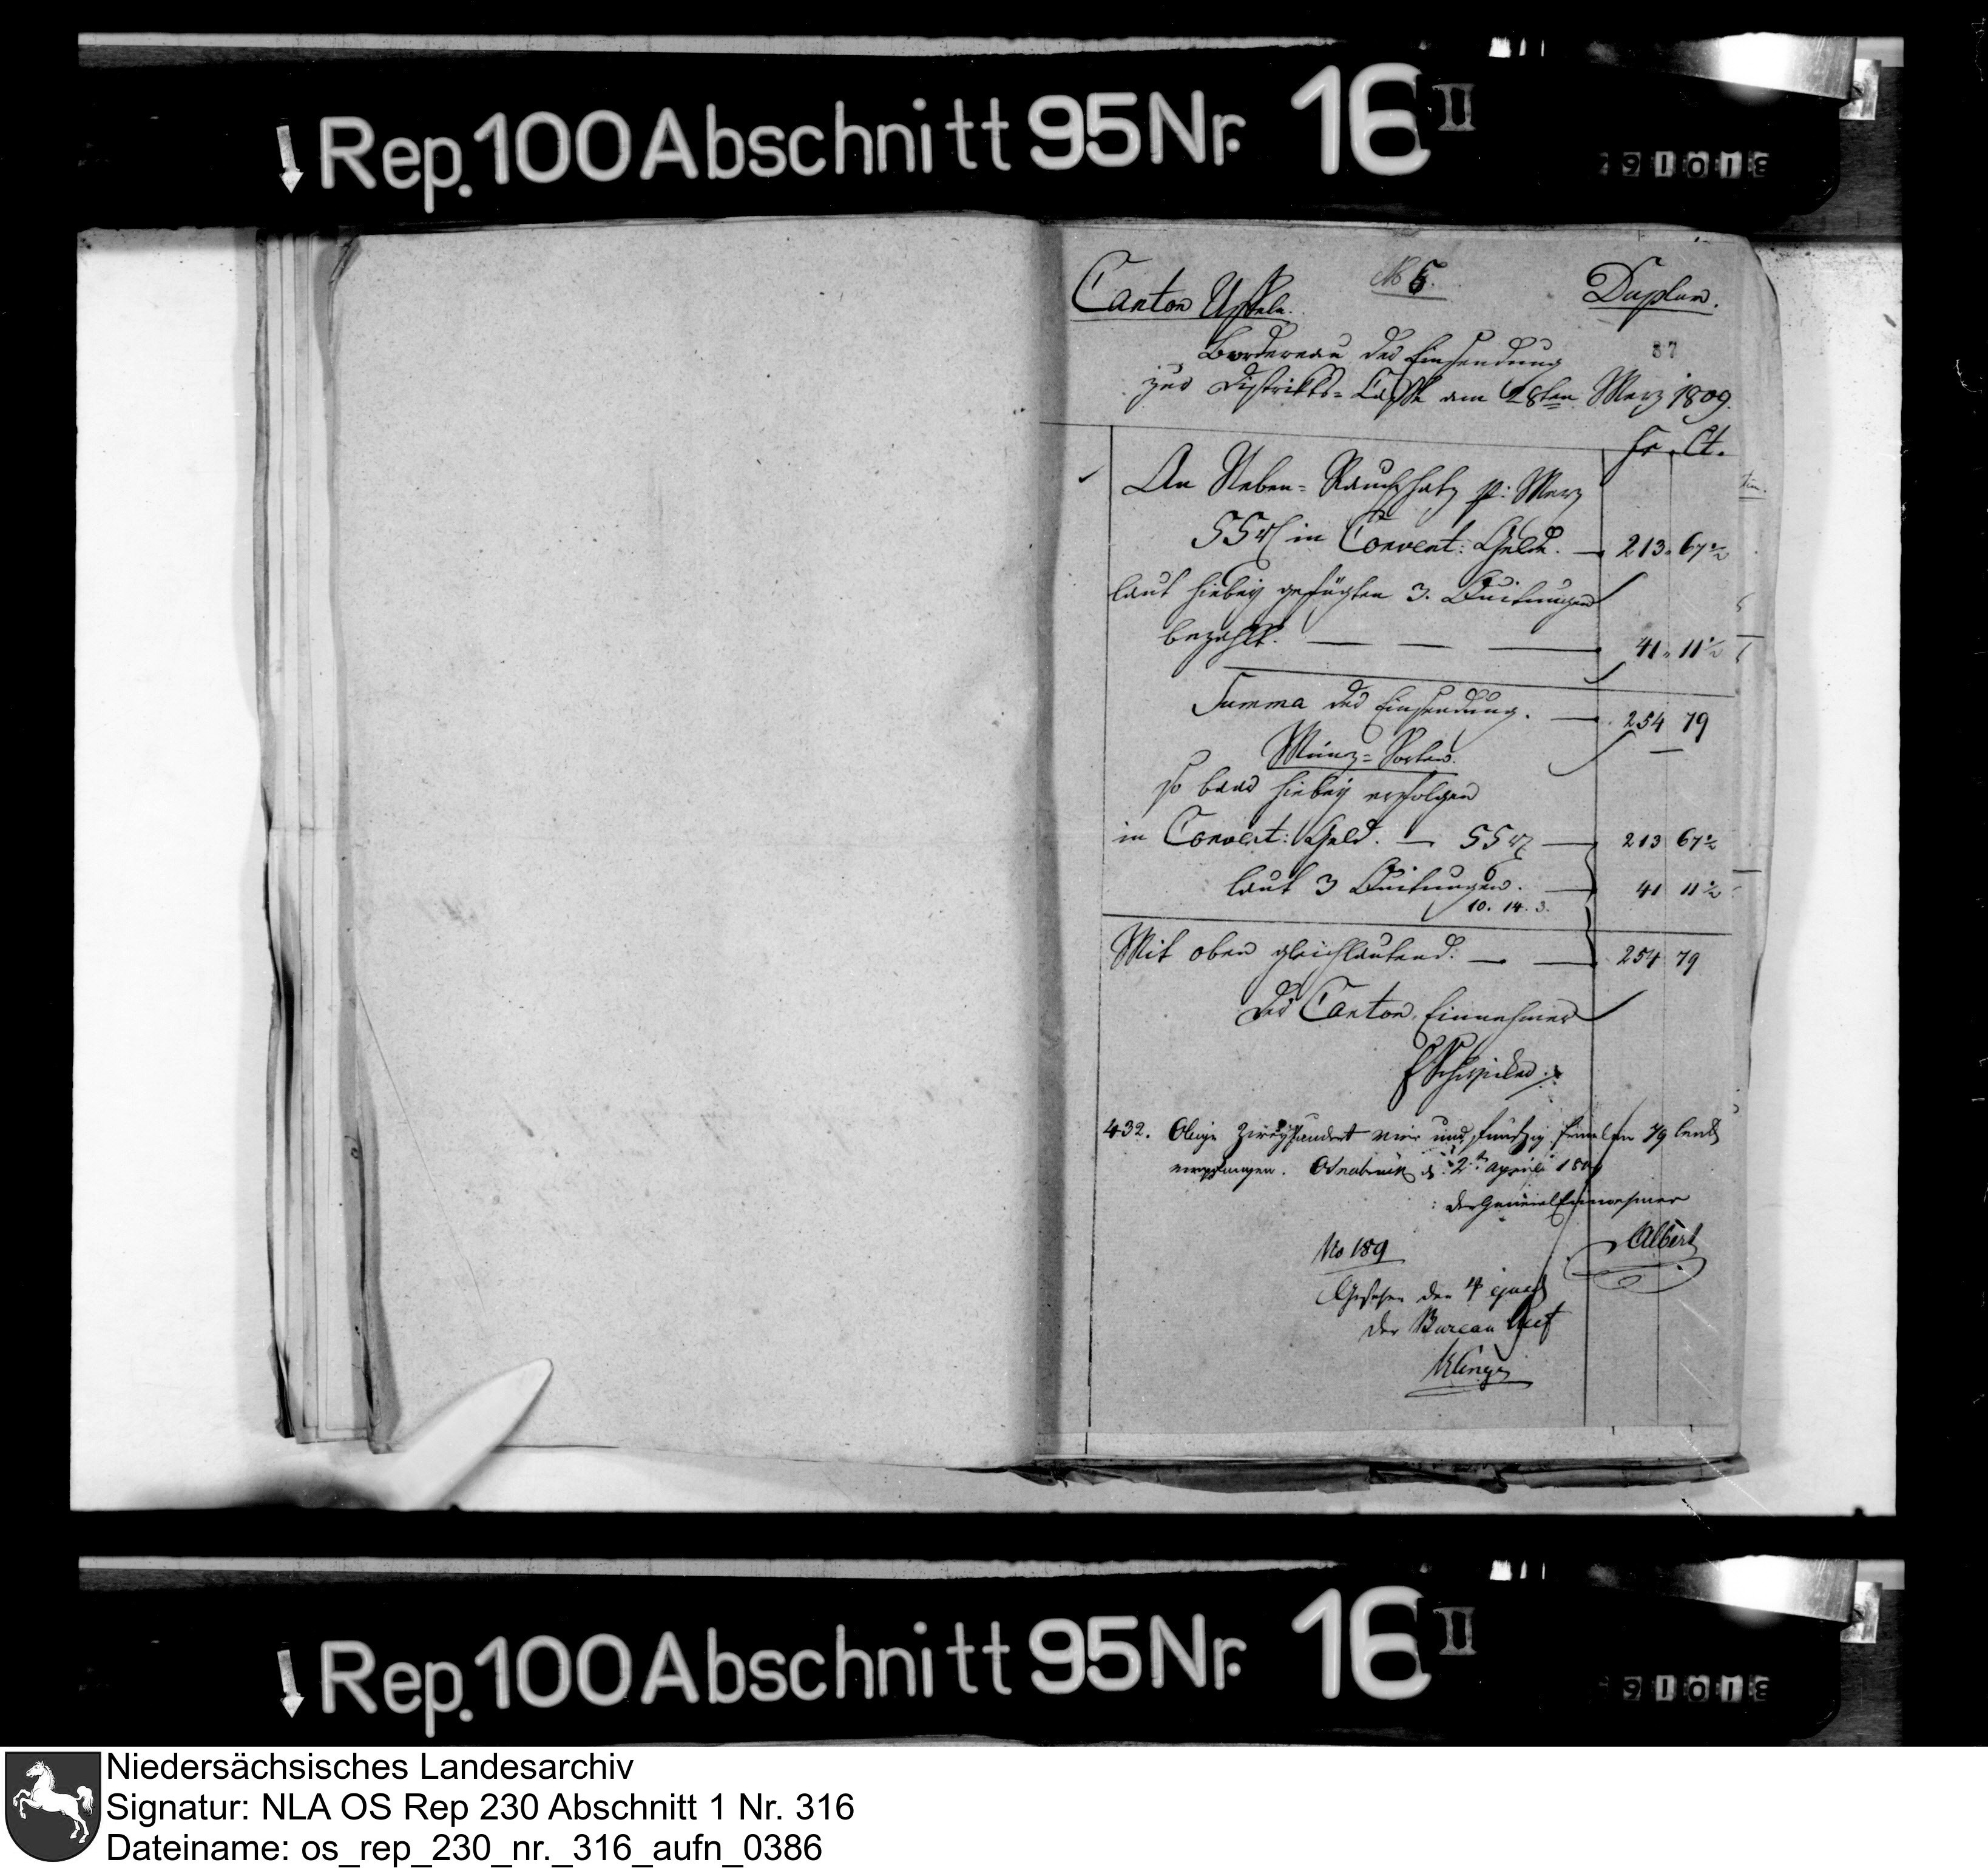 Rep. 100 Abschnitt 95 Nr. 16 II
No 5.
Canton Uffeln.
Duplum.
87
Bordereau der Einsendung
zur Distrikts-Casse am 28ten Merz 1809.
Fr. Ct.
An Neben-Rauchschatz p: Merz
55 rt in Convent: Gelde. — 213. 67½
laut hiebey gefügten 3. Quitungen
bezahlt. — — — 41. 11½
Summa der Einsendung. — 254 79
Münz-Sorten.
so baar hiebey erfolgen
in Convent: Geld. — 55 rt — 213 67½
laut 3 Quitungen. — 41 11½
10. 14. 3.
Mit oben gleichlautend. — — 254 79
Der Canton Einnehmer
432. Obige Zweyhundert vier und funfzig Franken 79 Cent
empfangen. Osnabrück d. 2t April 1809
der General Einnehmer
Albert
No 189
Gesehen den 4 ejusd
Der Bureau Chef
Rep. 100 Abschnitt 95 Nr. 16 II
Niedersächsisches Landesarchiv
Signatur: NLA OS Rep 230 Abschnitt 1 Nr. 316
Dateiname: os_rep_230_nr._316_aufn_0386